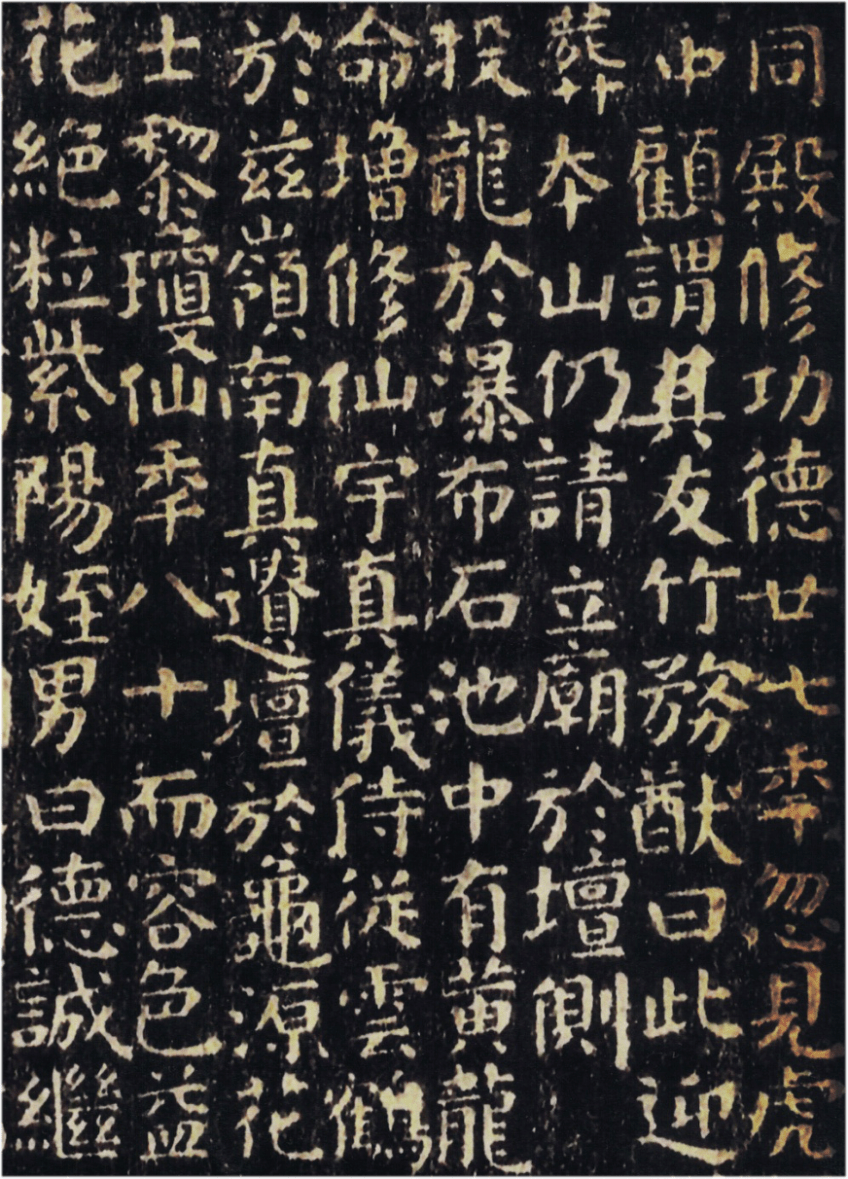 同殿修功德廿七秊忽見虎
中顧謂其友竹務猷曰此迎
葬本山仍請立廟於壇側
投龍於瀑布石池中有黃龍
命增修仙宇真儀侍從雲鶴
於兹嶺南真遺壇於龜源花
士黎瓊仙秊八十而容色益
花絕粒紫陽姪男曰德誠繼